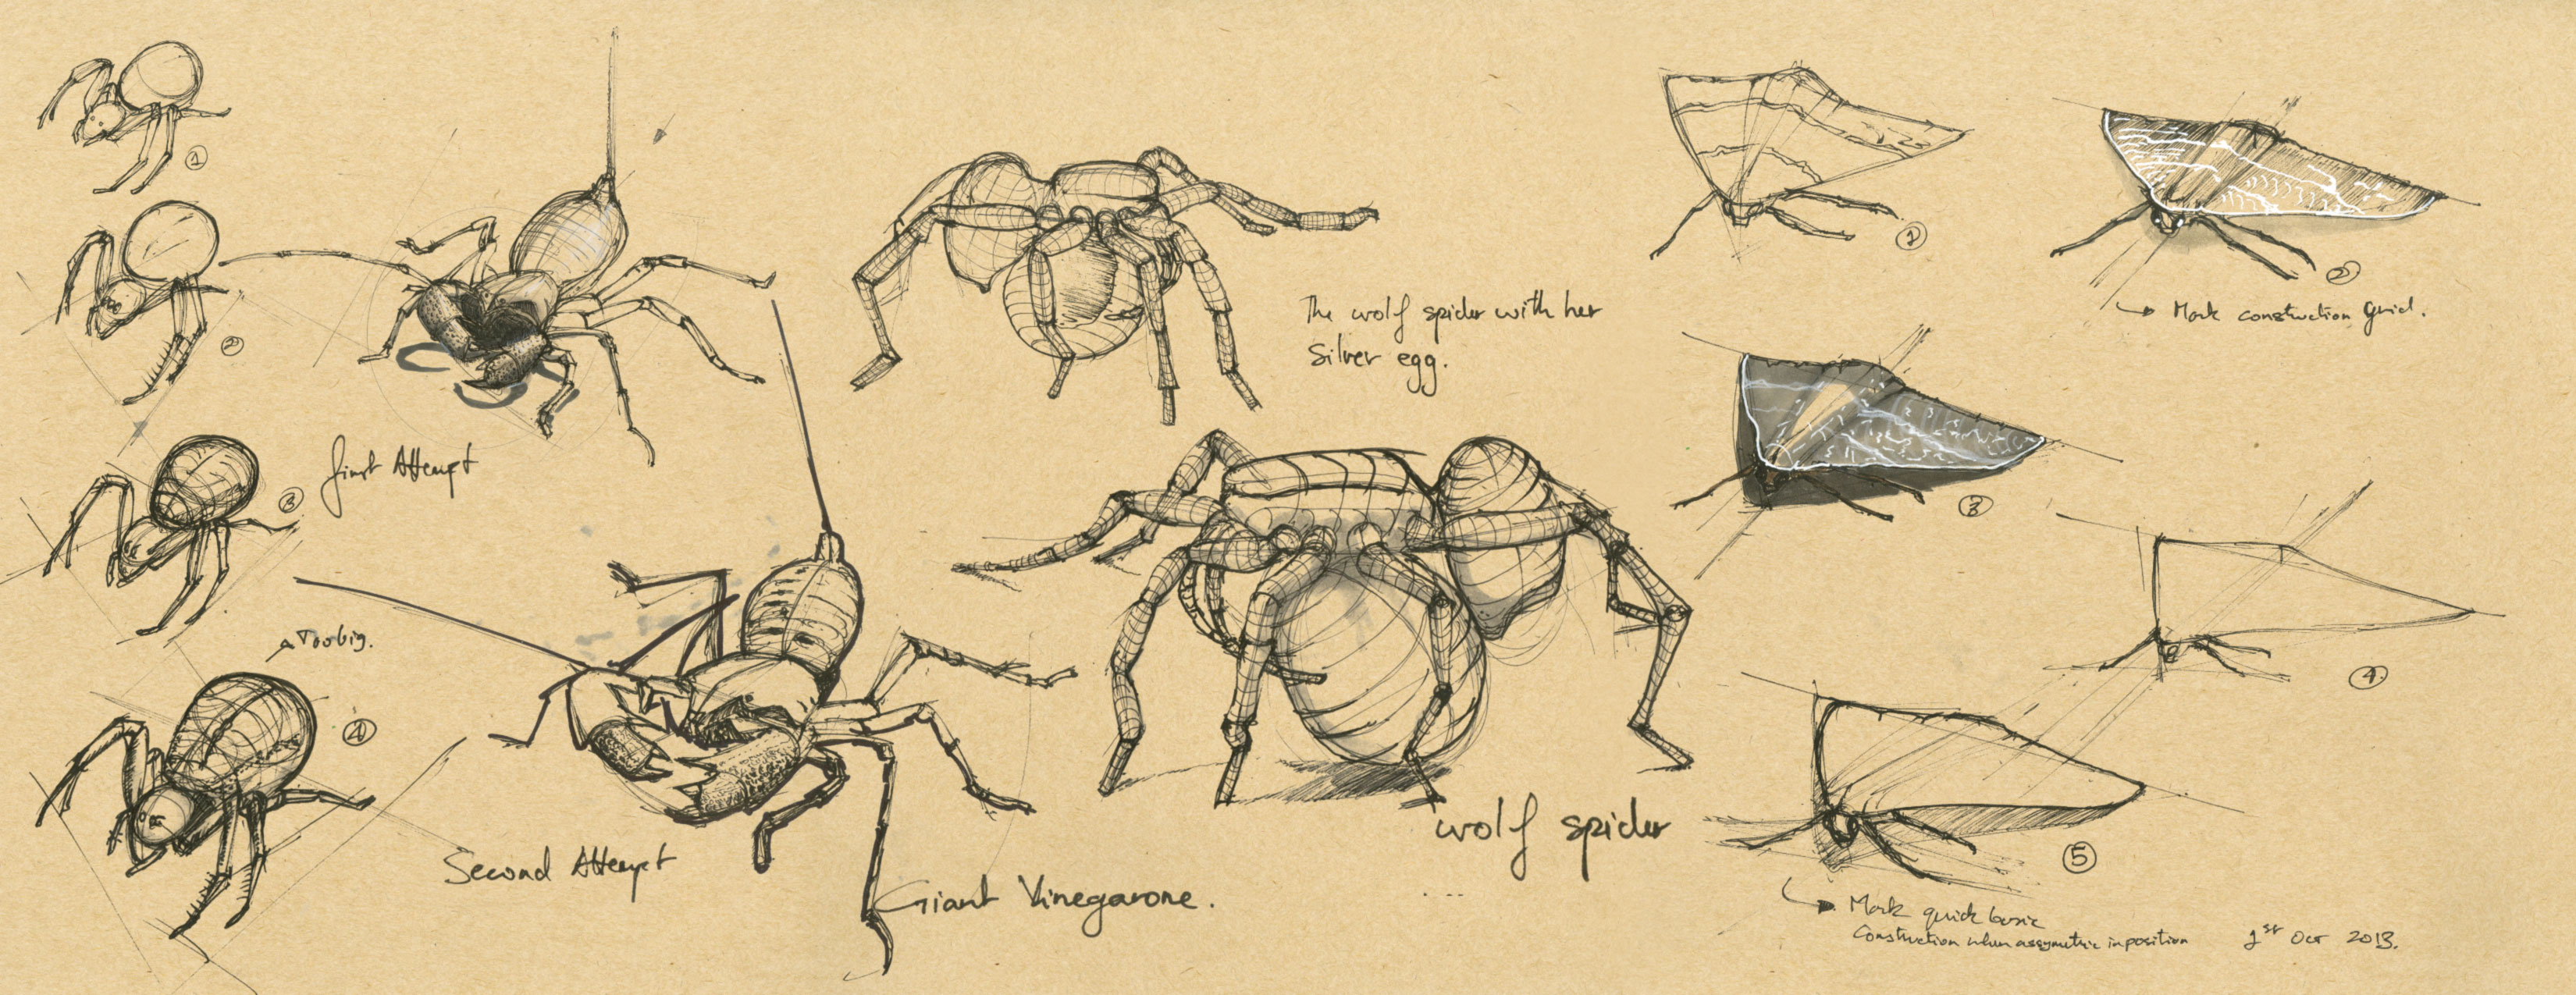 1
2
3
Too big.
4
First Attempt
Second Attempt
Giant Vinegarone.
The wolf spider with her
Silver egg.
wolf spider
1
2
Mark construction grid.
3
4
5
Mark quick basic
Construction when assymetric in position
1st Oct 2013.